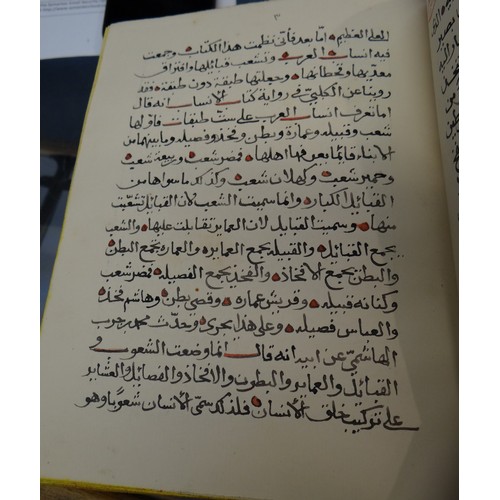 ٣
العلي العظيم اما بعد فأني نظمت هذا الكتاب وجمعت
فيه انساب العرب وتشعب قبايلها وافتراق
معديها وقحطانها وجعلتها طبقة دون طبقة فقد
روينا عن الكلبي في رواية كتاب الانساب انه قال
انما تعرف انساب العرب على ست طبقات فاولها
شعب وقبيله وعمارة وبطن وفخذ وفصيله وما بينهما من
الابناء فانما يعرفها اهلها فمضر شعب وربيعة شعب
وحمير شعب وكهلان شعب وكذلك ما سواها من
القبايل الكبار وانما سميت الشعب لان القبايل تشعبت
منها وسميت القبايل لان العماير تقابلت عليها والشعب
يجمع القبائل والقبيله يجمع العمايره والعماره يجمع البطن
والبطن يجمع الافخاذ والفخذ يجمع الفصيله فمضر شعب
وكنانه قبيله وقريش عماره وقصي بطن وهاشم فخذ
والعباس فصيله وعلى هذا يجري وحدث محمد بن حرب
الهاشمي عن ابيه انه قال انما وضعت الشعوب و
القبائل والعماير والبطون والافخاذ والفصائل والعشاير
على تركيب خلق الانسان فلذلك سمى الانسان شعوبا وهو